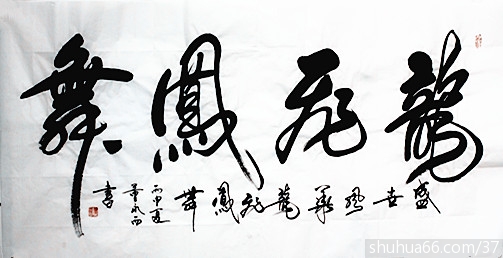 龍飛鳳舞
盛世風華龍飛鳳舞
丙申夏
書
shuhua66.com/37